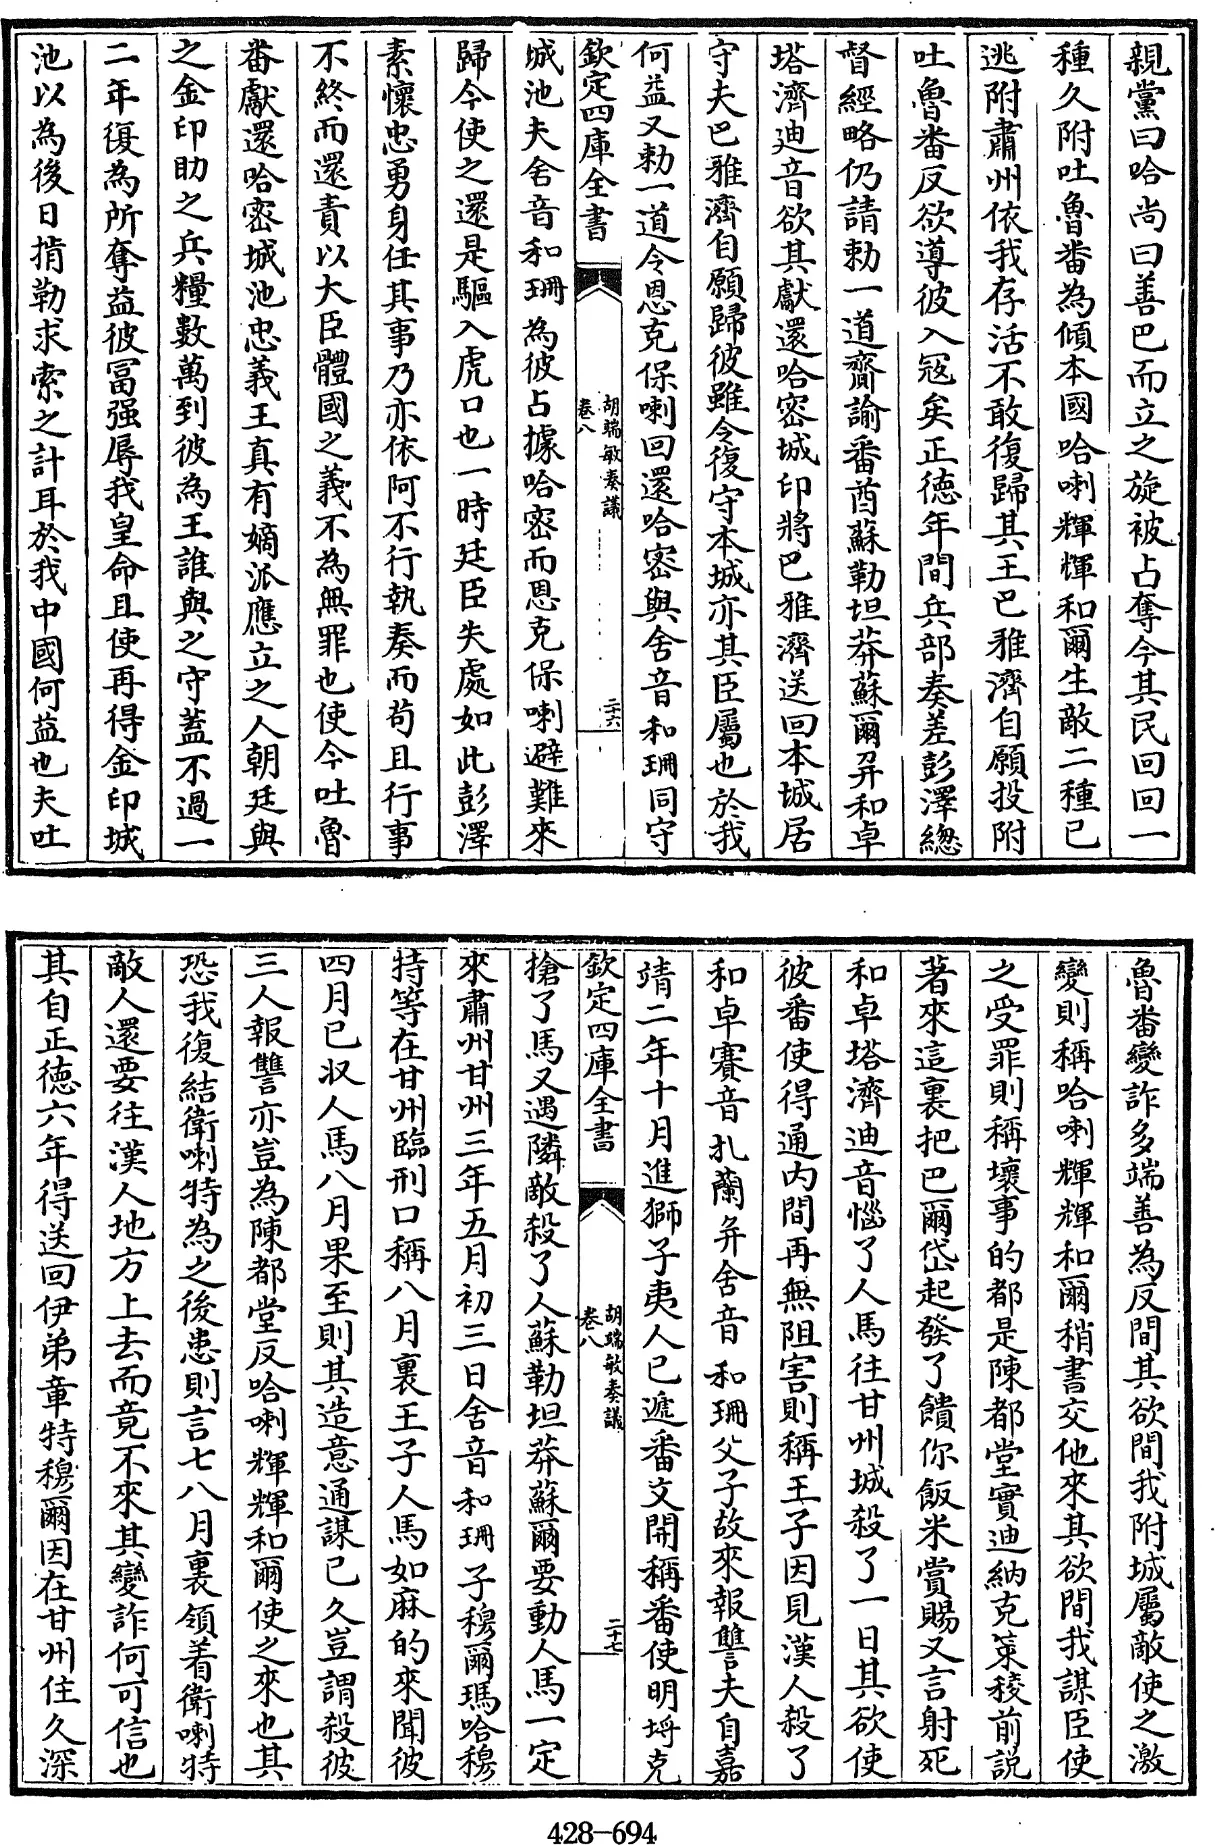 親黨曰哈尚曰善巴而立之旋被占奪今其民回回一
種久附吐魯番為傾本國哈喇輝輝和爾生敵二種已
逃附肅州依我存活不敢復歸其王巴雅濟自願投附
吐魯番反欲導彼入冦矣正德年間兵部奏差彭澤總
督經略仍請勅一道齎諭番酋蘇勒坦莽蘇爾丹和卓
塔濟廸音欲其獻還哈密城印將巴雅濟送回本城居
守夫巴雅濟自願歸彼雖令復守本城亦其臣屬也於我
何益又勅一道令恩克保喇回還哈密與舍音和珊同守
欽定四庫全書
胡端敏奏議
卷八
二十六
城池夫舍音和珊為彼占據哈密而恩克保喇避難來
歸今使之還是驅入虎口也一時廷臣失處如此彭澤
素懷忠勇身任其事乃亦依阿不行執奏而苟且行事
不終而還責以大臣體國之義不為無罪也使今吐魯
番獻還哈密城池忠義王真有嫡派應立之人朝廷與
之金印助之兵糧數萬到彼為王誰與之守蓋不過一
二年復為所奪益彼冨强辱我皇命且使再得金印城
池以為後日掯勒求索之計耳於我中國何益也夫吐
魯番變詐多端善為反間其欲間我附城屬敵使之激
變則稱哈喇輝輝和爾稍書交他來其欲間我謀臣使
之受罪則稱壞事的都是陳都堂實迪納克策稜前説
著來這裏把巴爾岱起發了饋你飯米賞賜又言射死
和卓塔濟迪音惱了人馬往甘州城殺了一日其欲使
彼番使得通内間再無阻害則稱王子因見漢人殺了
和卓賽音扎蘭并舍音和珊父子故來報讐夫自嘉
靖二年十月進獅子夷人已遞番文開稱番使明埒克
欽定四庫全書
胡端敏奏議
卷八
二十七
搶了馬又遇隣敵殺了人蘇勒坦莽蘇爾要動人馬一定
來肅州甘州三年五月初三日舍音和珊子穆爾瑪哈穆
特等在甘州臨刑口稱八月裏王子人馬如麻的來聞彼
四月已収人馬八月果至則其造意通謀已久豈謂殺彼
三人報讐亦豈為陳都堂反哈喇輝輝和爾使之來也其
恐我復結衛喇特為之後患則言七八月裏領着衛喇特
敵人還要往漢人地方上去而竟不來其變詐何可信也
其自正德六年得送回伊弟章特穆爾因在甘州住久深
428-694